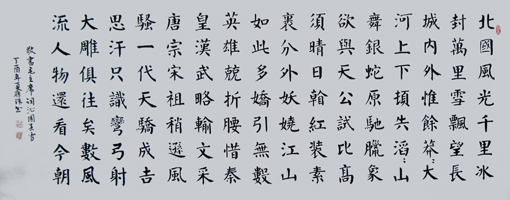 北國風光千里冰
封萬里雪飄望長
城内外惟餘莽〻大
河上下頓失滔〻山
舞銀蛇原馳臘象
欲與天公試比高
須晴日翰紅裝素
裹分外妖嬈江山
如此多嬌引無數
英雄競折腰惜秦
皇漢武略輸文采
唐宗宋祖稍遜風
騷一代天驕成吉
思汗只識彎弓射
大雕俱往矣數風
流人物還看今朝
敬書毛主席詞沁園春雪
丁酉年夏